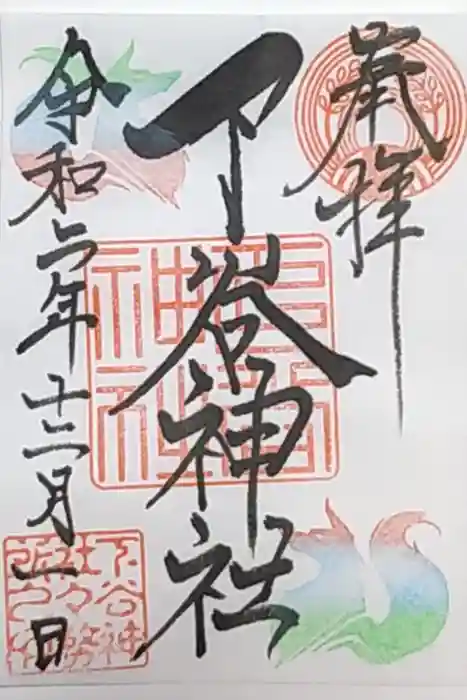 奉拝
下谷神社
令和六年十二月一日
下谷神
社々務
所之印